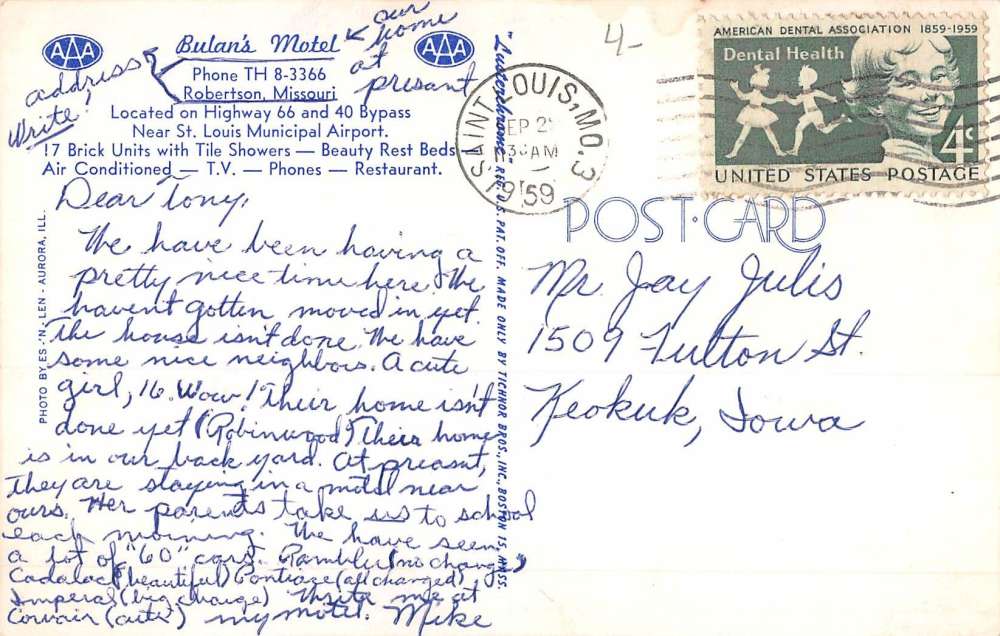 our
home
at
presant
address
Write!
4-
AAA
Bulan's Motel
AAA
Phone TH 8-3366
Robertson, Missouri
Located on Highway 66 and 40 Bypass
Near St. Louis Municipal Airport.
17 Brick Units with Tile Showers — Beauty Rest Beds
Air Conditioned — T.V. — Phones — Restaurant.
Dear Tony,
We have been having a
pretty nice time here. We
havent gotten moved in yet.
The house isn't done. We have
some nice neighbors. A cute
girl, 16. Wow! Their home isn't
done yet (Robinwood) Their home
is in our back yard. At preasnt,
they are staying in a motel near
ours. Her parents take us to school
each morning. We have seen
a lot of "60" cars. Rambler (no change)
Cadalac (beautiful) Pontiac (all changed)
Imperal (big change) Write me at
Corvair (cute) my motel. Mike
PHOTO BY ES-'N-LEN - AURORA, ILL.
"Lusterchrome" REG. U.S. PAT. OFF. MADE ONLY BY TICHNOR BROS., INC., BOSTON 15, MASS.
SAINT LOUIS, MO. 3
SEP 2
AM
1959
AMERICAN DENTAL ASSOCIATION 1859-1959
Dental Health
4¢
UNITED STATES POSTAGE
POST·CARD
Mr. Jay Julis
1509 Fulton St.
Keokuk, Iowa